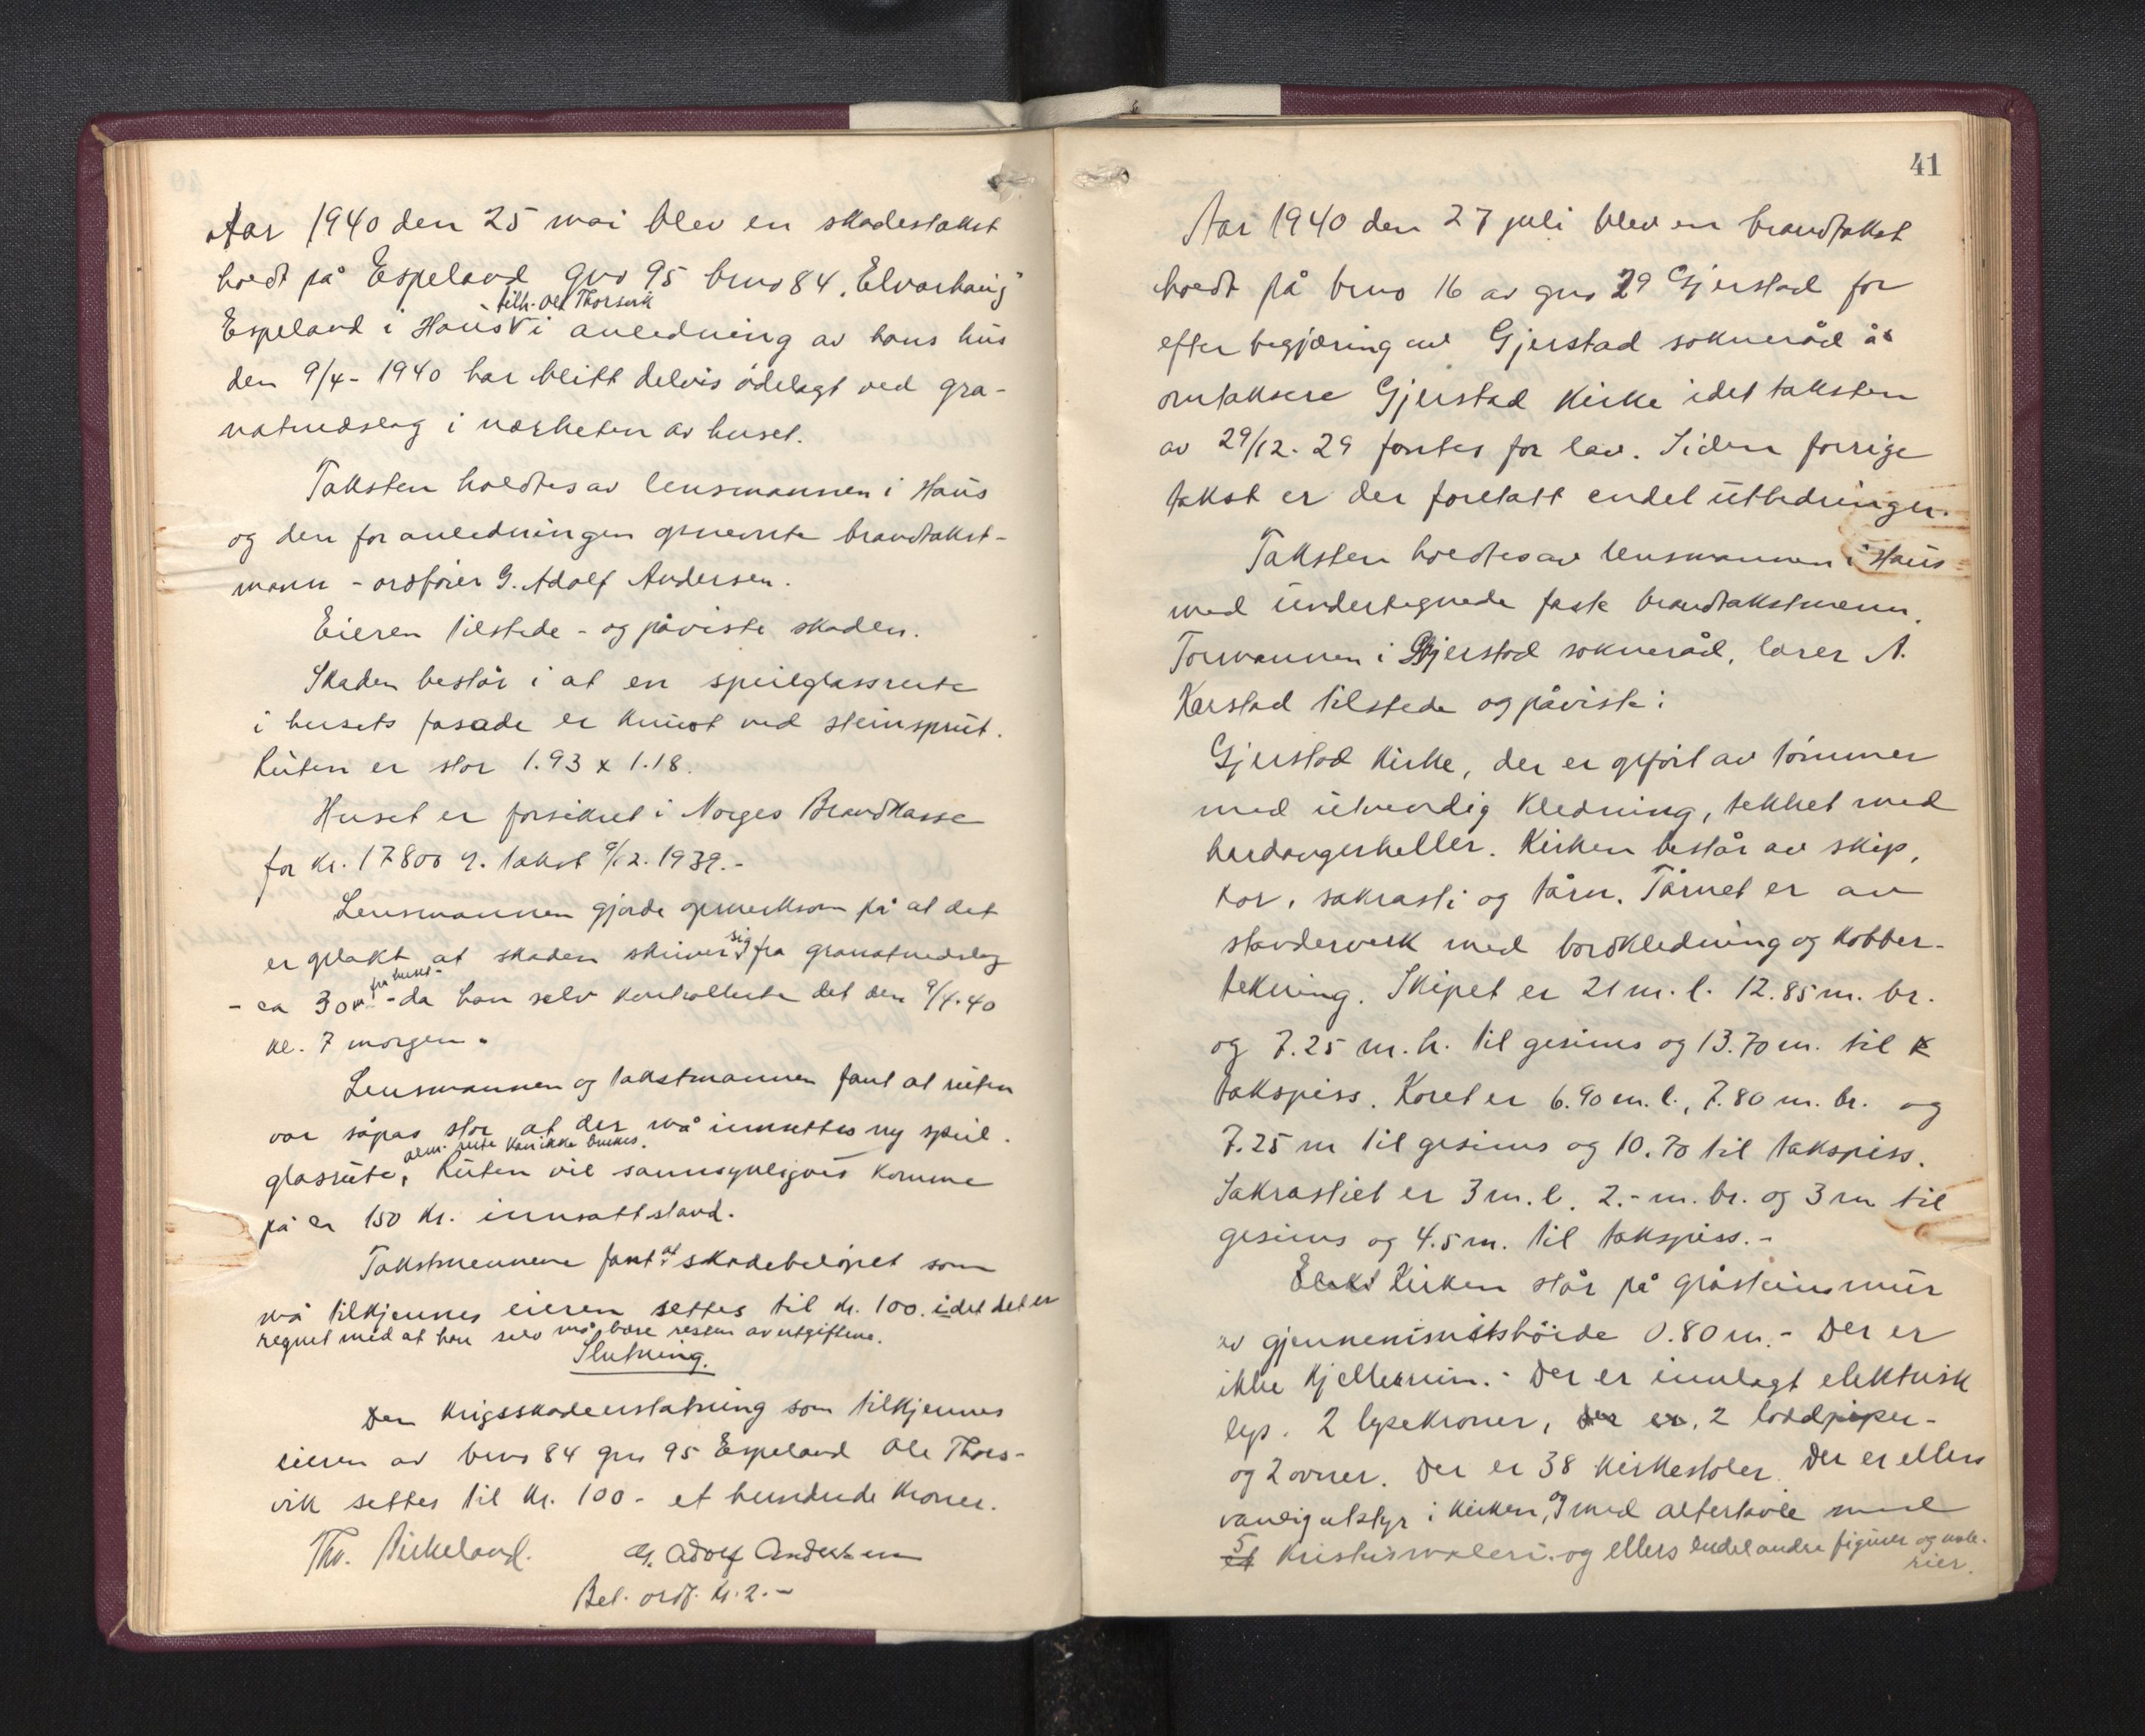 Aar 1940 den 25 mai blev en skadestakst
holdt på Espeland gno 95 bruno 84 "Elvarhaug"
tilh. Ole Thorsvik
Espeland i Haus i anledning av hans hus
den 9/4 - 1940 har blitt delvis ødelagt ved gra-
natnedslag i nærheten av huset.
Taksten holdtes av lensmannen i Haus
og den for anledningen opnevnte brandtakst-
mann - ordfører G. Adolf Andersen.
Eieren tilstede - og påviste skaden.
Skaden består i at en speilglassrute
i husets fasade er knust ved steinsprut.
Ruten er stor 1.93 x 1.18.
Huset er forsikret i Norges Brandkasse
for kr. 17800 takst 9/12. 1939.-
Lensmannen gjorde opmerksom på at det
er på at skaden skriver sig fra granatnedslag
fra huset-
- ca 30 m. - da han selv kontrollerte det den 9/4.40
kl. 7 morgen.
Lensmannen og takstmannen fant at ruten
var såpas stor at der må innsettes ny speil-
alm. rute kan ikke brukes.
glasrute, Ruten vil sannsynligvis komme
på ca 150 kr. innsatt stand.
Takstmennene fant at skadebeløpet som
må tilkjennes eieren settes til kr. 100. idet det er
regnet med at han selv må bære resten av utgiftene.
Slutning.
Den krigsskadeerstatning som tilkjennes
eieren av bruno 84 gno 95 Espeland Ole Thors-
vik settes til kr. 100 - et hundrede kroner.
Thv. Birkeland. G. Adolf Andersen
Bet. ordf. kr. 2.-
41
Aar 1940 den 27 juli blev en brandtakst
holdt på bruno 16 av gno 29 Gjerstad for
efter begjæring av Gjerstad sokneråd å
omtaksere Gjerstad Kirke idet taksten
av 29/12. 29 fantes for lav. Siden forrige
takst er der foretatt endel utbedringer.
Taksten holdtes av lensmannen i Haus
med undertegnede faste brandtakstmenn.
Formannen i Gjerstad sokneråd, lærer A.
Karstad tilstede og påviste:
Gjerstad Kirke, der er opført av tømmer
med utvendig kledning, tekket med
hardangerheller. Kirken består av skip,
kor, sakrasti og tårn. Tårnet er av
stenderverk med bordkledning og kobber-
tekning. Skipet er 21 m. l. 12.85 m. br.
og 7.25 m. h. til gesims og 13.70 m. til
takspiss. Koret er 6.90 m. l., 7.80 m. br. og
7.25 m til gesims og 10.70 til takspiss.
Sakrastiet er 3 m. l. 2.- m. br. og 3 m til
gesims og 4.5 m. til takspiss.-
Elekt Kirken står på gråsteinsmur
av gjennemsnitshöide 0.80 m.- Der er
ikke kjellerrum.- Der er innlagt elektrisk
lys. 2 lysekroner, der er, 2 loddpiper-
og 2 ovner. Der er 38 kirkestoler. Der er ellers
vanlig utstyr i kirken, og med altertavle med
5 Kristusmaleri. og ellers endel andre figurer og male-
rier.